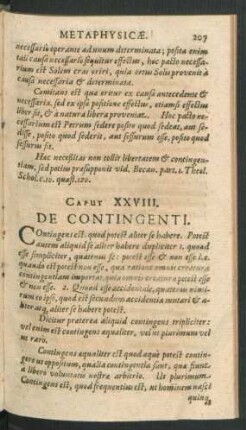 METAPHYSICÆ. 207
necessariò operante ad unum determinata; posita enim
tali causâ necessariò sequitur effectus, hoc pacto necessa-
rium est Solem cras oriri, quia ortus Solis provenit à
causâ necessariâ & determinatâ.
Comitans est qua oritur ex causâ antecedente &
necessariâ, sed ex ipsâ positione effectus, etiamsi effectus
liber sit, & à naturâ libera proveniat. Hoc pacto ne-
cessarium est Petrum sedere posito quod sedeat, aut se-
disse, posito quod sederit, aut sessurum esse, posito quod
sessurus sit.
Hac necessitas non tollit libertatem & contingen-
tiam, sed potius præsupponit vid. Becan. part. 1. Theol.
Schol. c. 10. quæst.
CAPUT XXVIII.
DE CONTINGENTI.
COntingens est: quod potest aliter se habere. Potest
autem aliquid se aliter habere dupliciter 1. quoad
esse simpliciter, quatenus sc: potest esse & non esse
quando est potest non esse, qua ratione omnis creatura
contingentiam importat, quia omnis creatura potest esse
& non esse. 2. Quoad esse accidentale, quatenus nimi-
rum res ipsa, quod est secundum accidentia mutari &
alterari, aliter se habere potest.
Dicitur præterea aliquid contingens tripliciter:
vel enim est contingens æqualiter, vel ut plurimum vel
ut rarò.
Contingens æqualiter est quod æquè potest contin-
gere ut oppositum, qualia contingentia sunt, quæ fiunt
à liberâ voluntatis nostræ arbitrio. Ut plurimum
Contingens est, quod frequentius est, ut hominem nasci
quinq